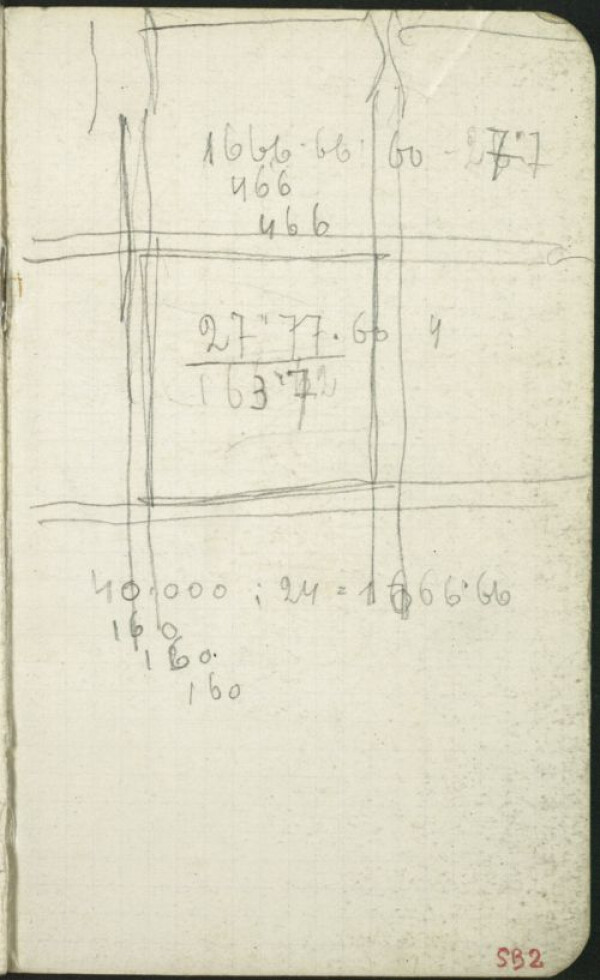 1666·66· 60 - 27·7
466
466
27"77·60 4
163·72
40·000 : 24 = 1666·66
160
160·
160
SB2